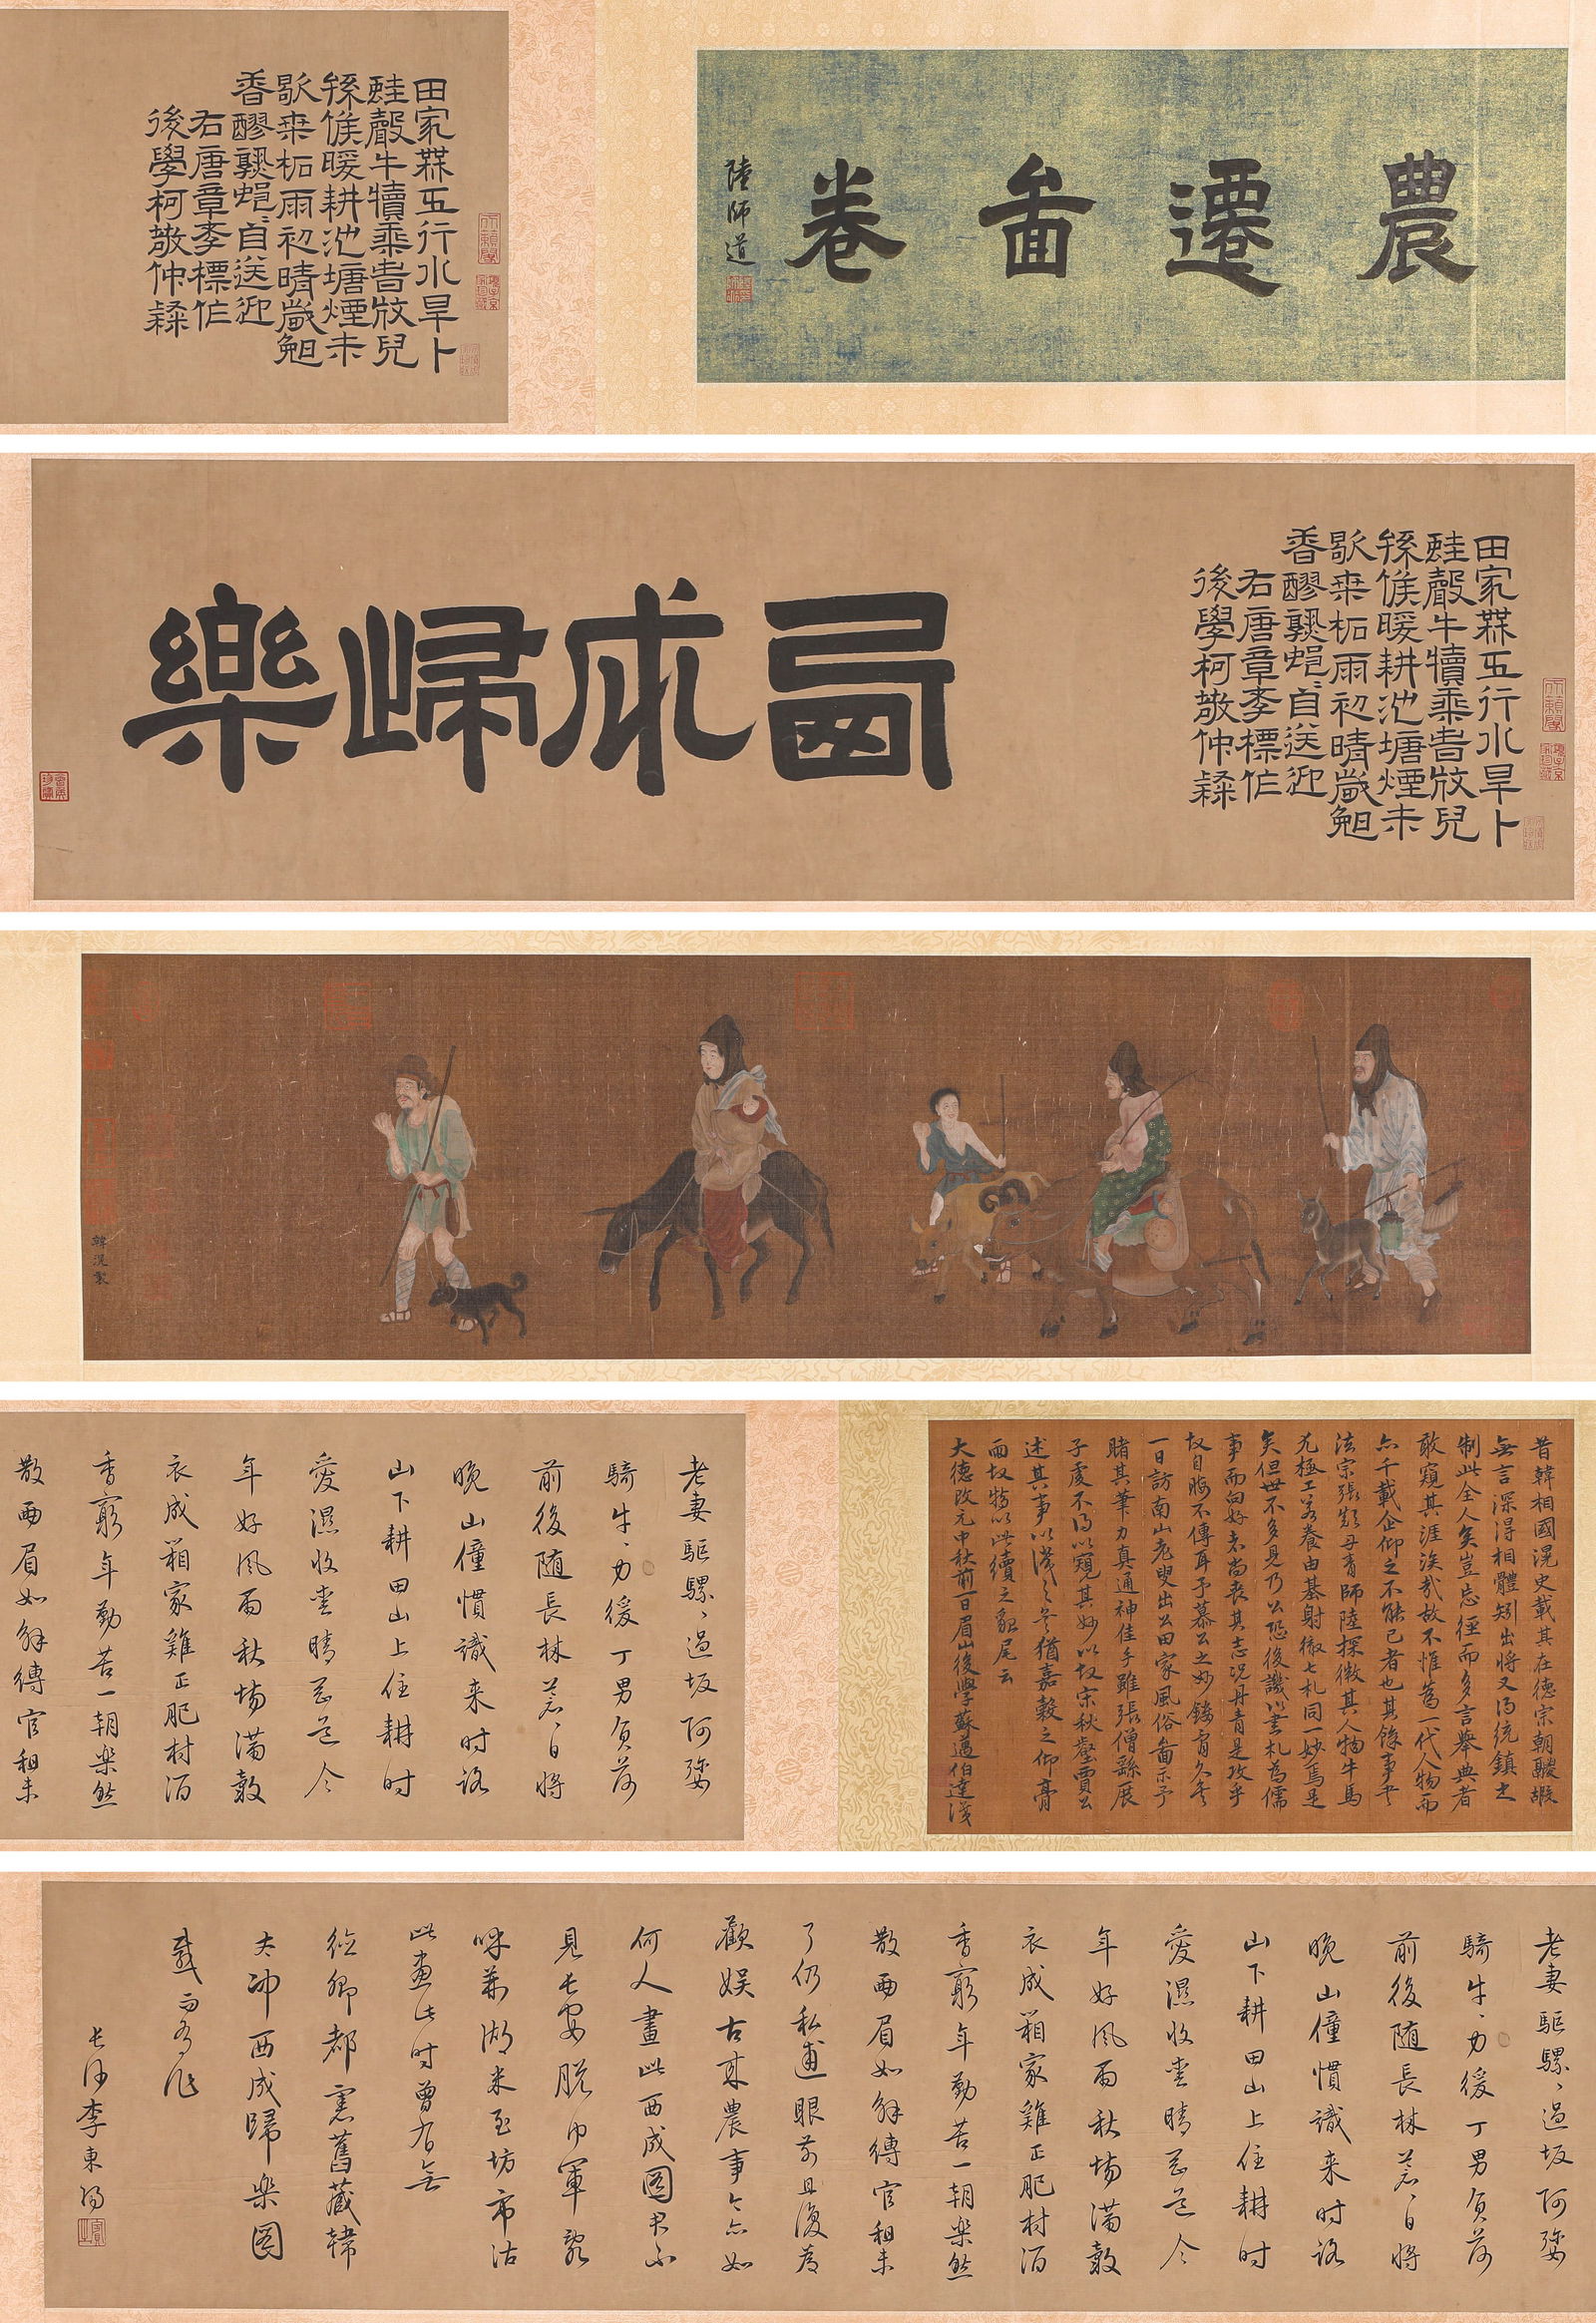 農遷啚卷
陸師道
田家無五行水旱卜
蛙聲牛犢乘春放兒
孫候暖耕池塘煙未
起桑柘雨初晴歲晚
香醪熟村村自送迎
右唐章孝標作
後學柯敬仲隸
田家無五行水旱卜
蛙聲牛犢乘春放兒
孫候暖耕池塘煙未
起桑柘雨初晴歲晚
香醪熟村村自送迎
右唐章孝標作
後學柯敬仲隸
西成歸樂
韓滉製
昔韓相國滉史載其在德宗朝
無言深得相體矧出將又為統鎮之
制此全人矣豈忘徑而多言舉典者
敢窺其涯涘哉故不惟為一代人物而
亦千載企仰之不能已者也其餘事也
法宗張顛丹青師陸探微其人物牛馬
尤極工若養由基射徹七札同一妙焉是
矣但世不多見乃公恐後譏以書札為儒
事而向好者尚喪其志況丹青是攻乎
故自晦不傳耳予慕公之妙
一日訪南山老叟出公田家風俗啚示予
睹其筆力真通神佳手雖張僧繇展
子虔不得以窺其妙以故宋秋壑賈公
述其事以識之
而故特以此續之貂尾云
大德改元中秋前一日眉山後學蘇邁伯達識
老妻驅騾騾過坂阿婆
騎牛牛力緩丁男負荷
前後随長林蒼蒼日將
晚山僮慣識来时路
山下耕田山上住耕时
愛濕收愛晴忽忽今
年好風雨秋場滿穀
衣成箱家雞正肥村酒
香窮年勤苦一朝樂然
散兩眉如解縛官租未
老妻驅騾騾過坂阿婆
騎牛牛力緩丁男負荷
前後随長林蒼蒼日將
晚山僮慣識来时路
山下耕田山上住耕时
愛濕收愛晴忽忽今
年好風雨秋場滿穀
衣成箱家雞正肥村酒
香窮年勤苦一朝樂然
散兩眉如解縛官租未
了仍私逋眼前且復為
歡娱古来農事今亦如
何人畫此西成圖君不
見長安脱巾軍
呼菜湖米至坊市沽
此畫此时曾有無
倫卿都憲舊藏韓
太冲西成歸樂圖
戲而為作
長沙李東陽